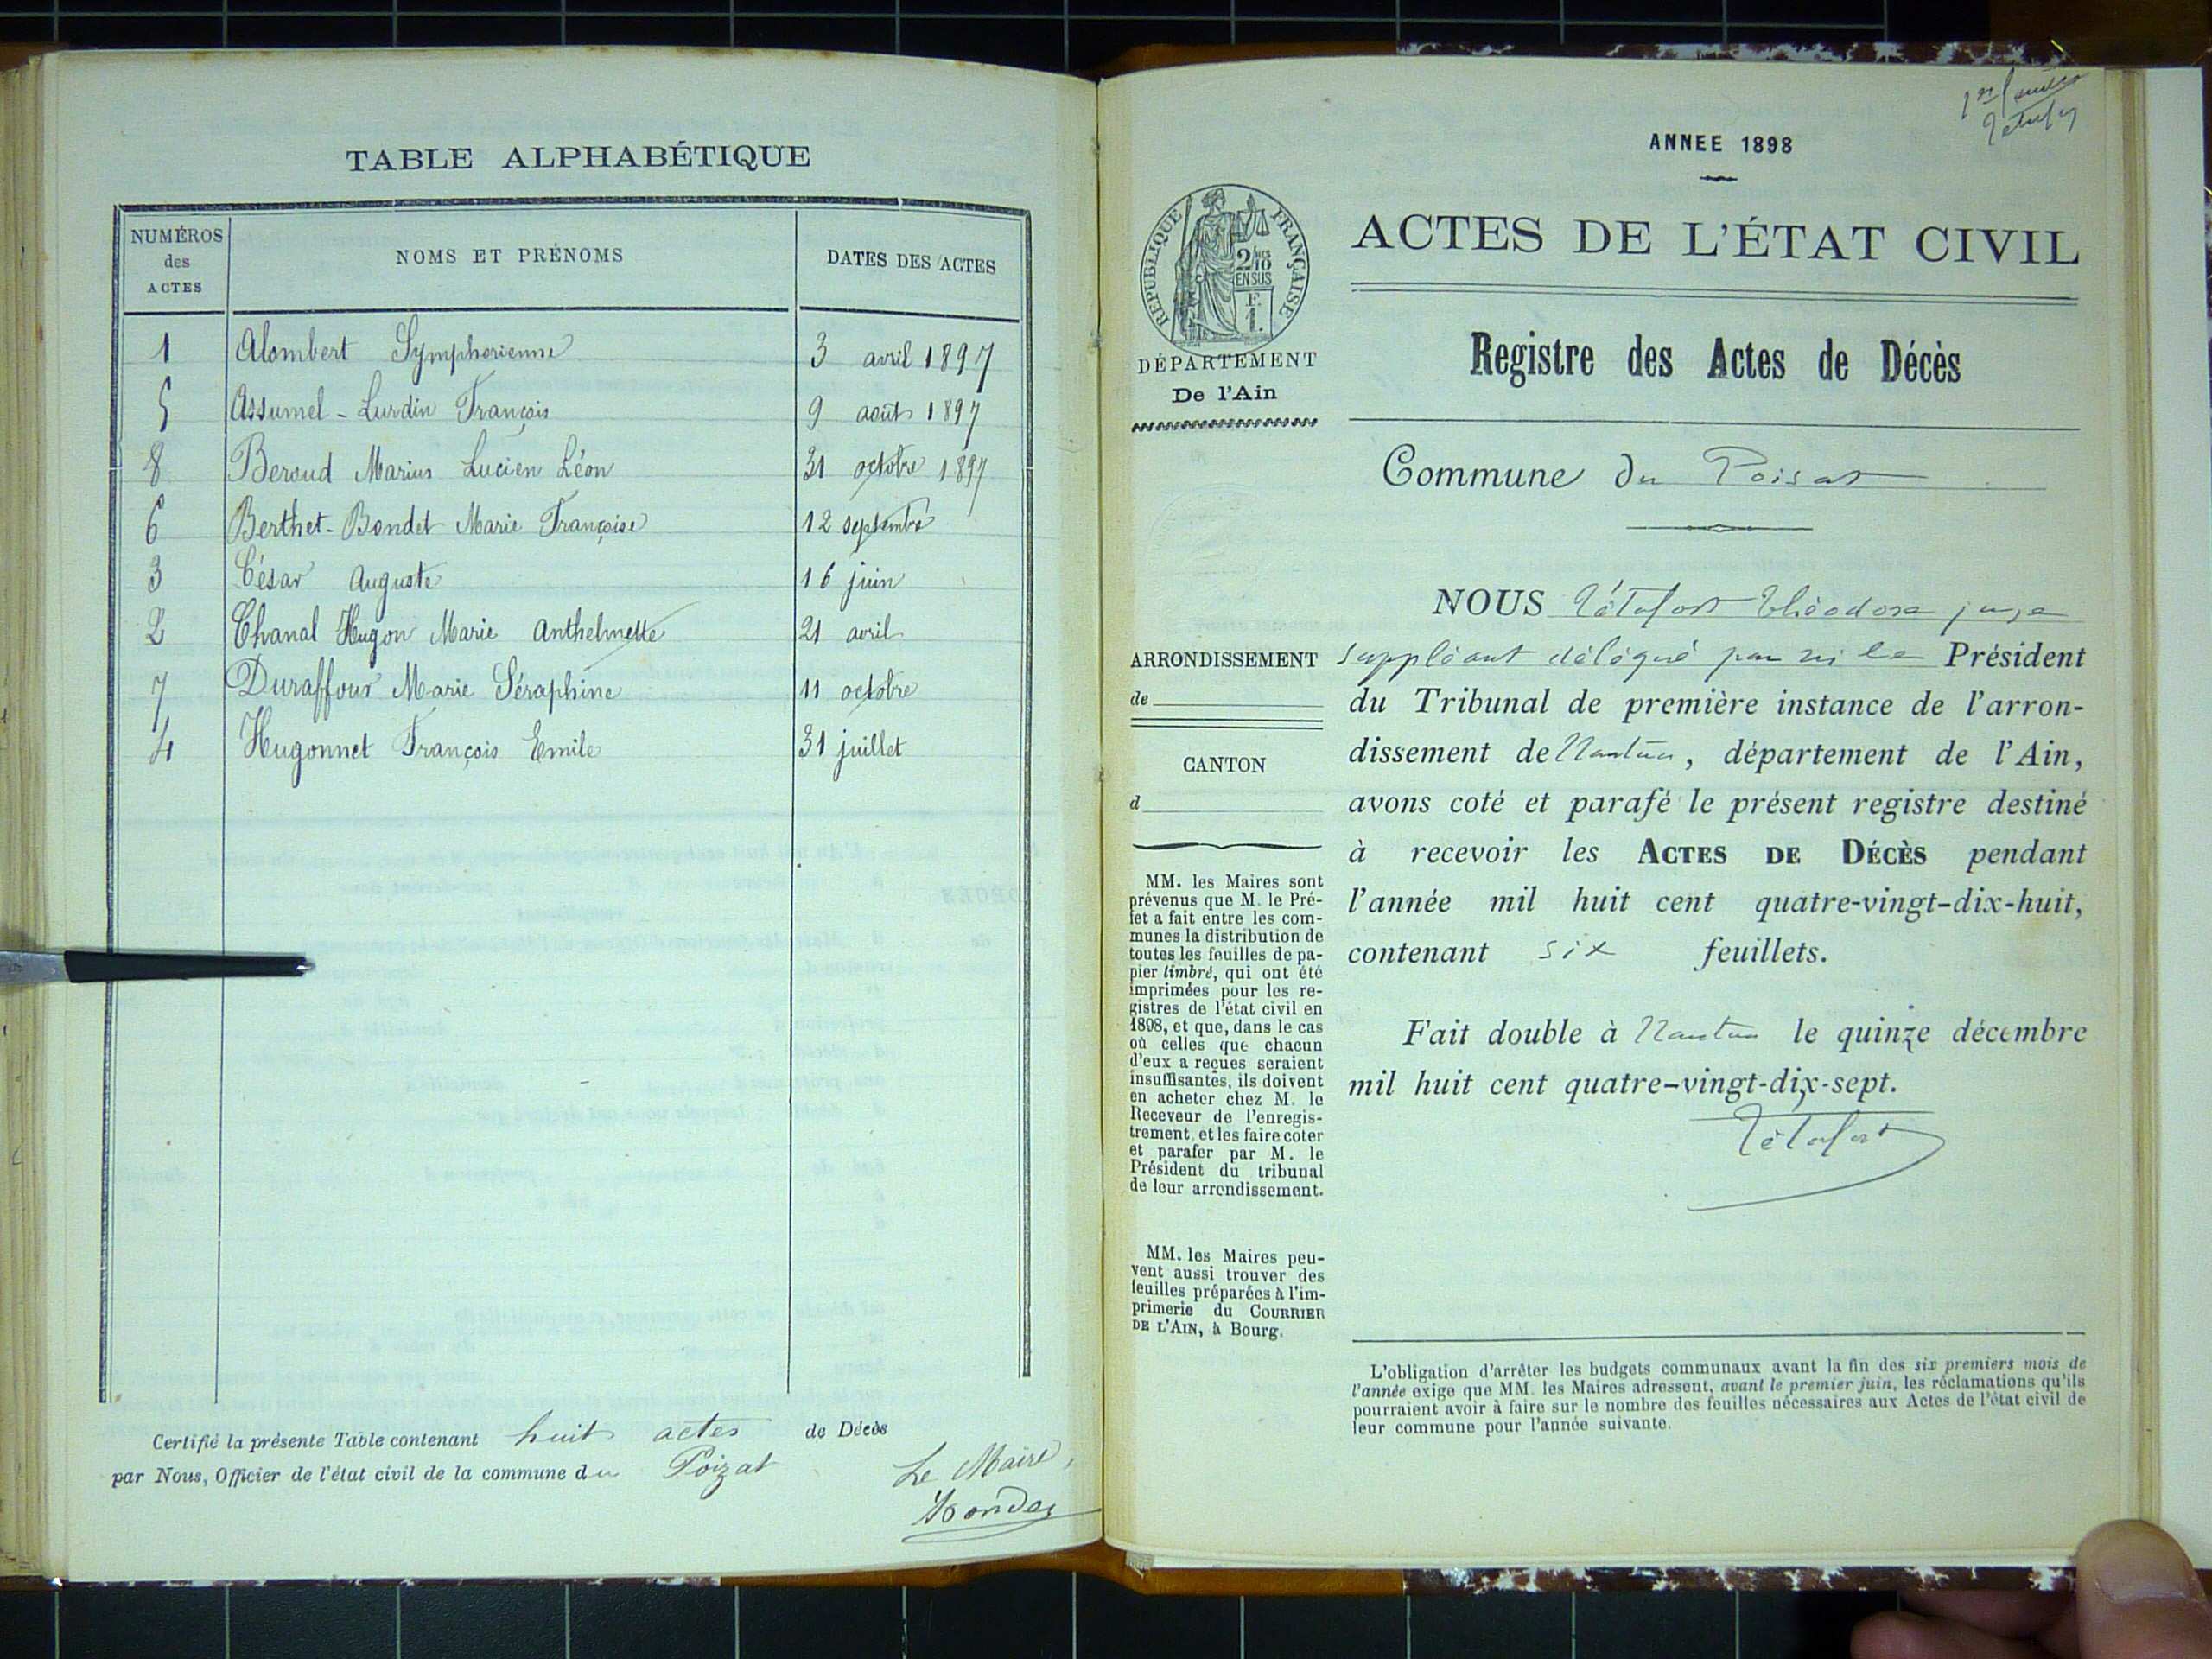 TABLE ALPHABÉTIQUE
NUMÉROS des ACTES NOMS ET PRÉNOMS DATES DES ACTES
1 Alombert Symphorienne 3 avril 1897
5 Assumel-Lurdin François 9 août 1897
8 Beroud Marius Lucien Léon 31 octobre 1897
6 Berthet-Bondet Marie Françoise 12 septembre
3 César Auguste 16 juin
2 Chanal Hugon Marie Anthelmette 21 avril
7 Duraffour Marie Séraphine 11 octobre
4 Hugonnet François Emile 31 juillet
Certifié la présente Table contenant huit actes de Décès
par Nous, Officier de l'état civil de la commune du Poizat
Le Maire,
1er feuillet
ANNEE 1898
RÉPUBLIQUE FRANÇAISE
2/10 EN SUS
F. 1.
DÉPARTEMENT
De l'Ain
ACTES DE L'ÉTAT CIVIL
Registre des Actes de Décès
Commune du Poisat
ARRONDISSEMENT
de
CANTON
d
MM. les Maires sont
prévenus que M. le Pré-
fet a fait entre les com-
munes la distribution de
toutes les feuilles de pa-
pier timbré, qui ont été
imprimées pour les re-
gistres de l'état civil en
1898, et que, dans le cas
où celles que chacun
d'eux a reçues seraient
insuffisantes, ils doivent
en acheter chez M. le
Receveur de l'enregis-
trement, et les faire coter
et parafer par M. le
Président du tribunal
de leur arrondissement.
MM. les Maires peu-
vent aussi trouver des
feuilles préparées à l'im-
primerie du COURRIER
DE L'AIN, à Bourg.
NOUS Tétafort Théodore juge
suppléant délégué par M le Président
du Tribunal de première instance de l'arron-
dissement de Nantua, département de l'Ain,
avons coté et parafé le présent registre destiné
à recevoir les ACTES DE DÉCÈS pendant
l'année mil huit cent quatre-vingt-dix-huit,
contenant six feuillets.
Fait double à Nantua le quinze décembre
mil huit cent quatre-vingt-dix-sept.
Tétafort
L'obligation d'arrêter les budgets communaux avant la fin des six premiers mois de
l'année exige que MM. les Maires adressent, avant le premier juin, les réclamations qu'ils
pourraient avoir à faire sur le nombre des feuilles nécessaires aux Actes de l'état civil de
leur commune pour l'année suivante.